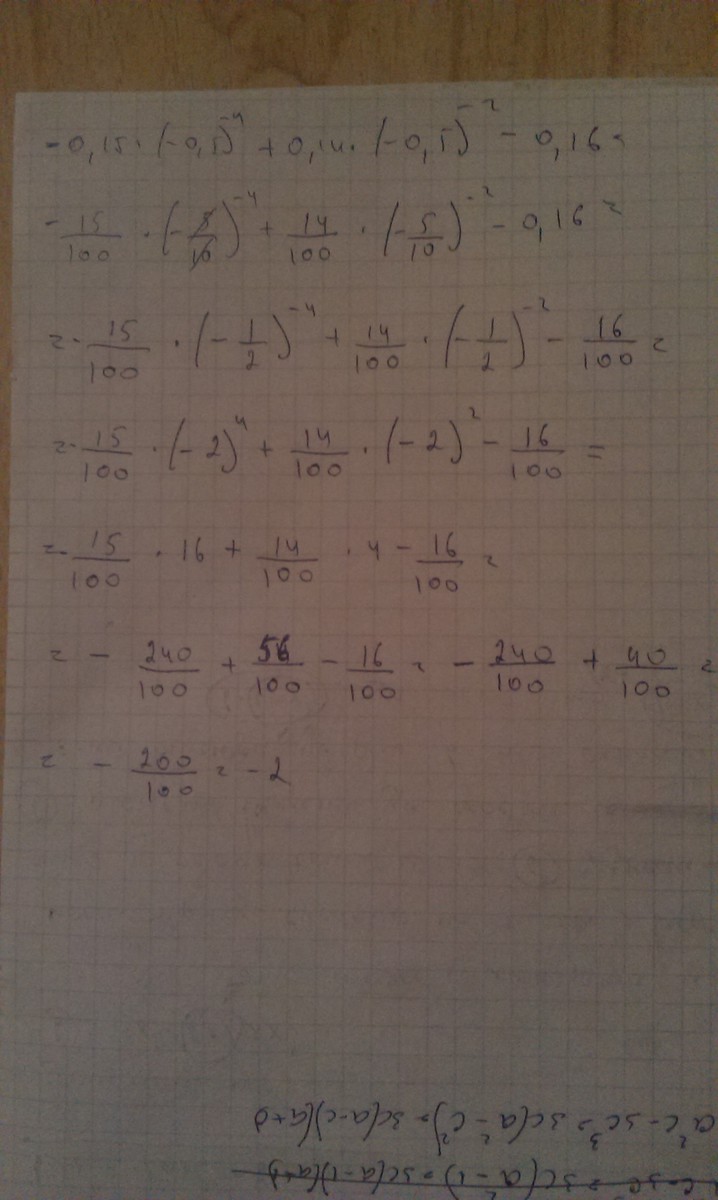 -0,15·(-0,5)^-4 + 0,14·(-0,5)^-2 - 0,16 =
-15/100 · (-5/10)^-4 + 14/100 · (-5/10)^-2 - 0,16 =
= -15/100 · (-1/2)^-4 + 14/100 · (-1/2)^-2 - 16/100 =
= -15/100 · (-2)^4 + 14/100 · (-2)^2 - 16/100 =
= -15/100 · 16 + 14/100 · 4 - 16/100 =
= - 240/100 + 56/100 - 16/100 = - 240/100 + 40/100 =
= - 200/100 = -2
a²c - 3c³ = 3c(a² - c²) = 3c(a-c)(a+
= 3c(a² - 1) = 3c(a-1)(a+